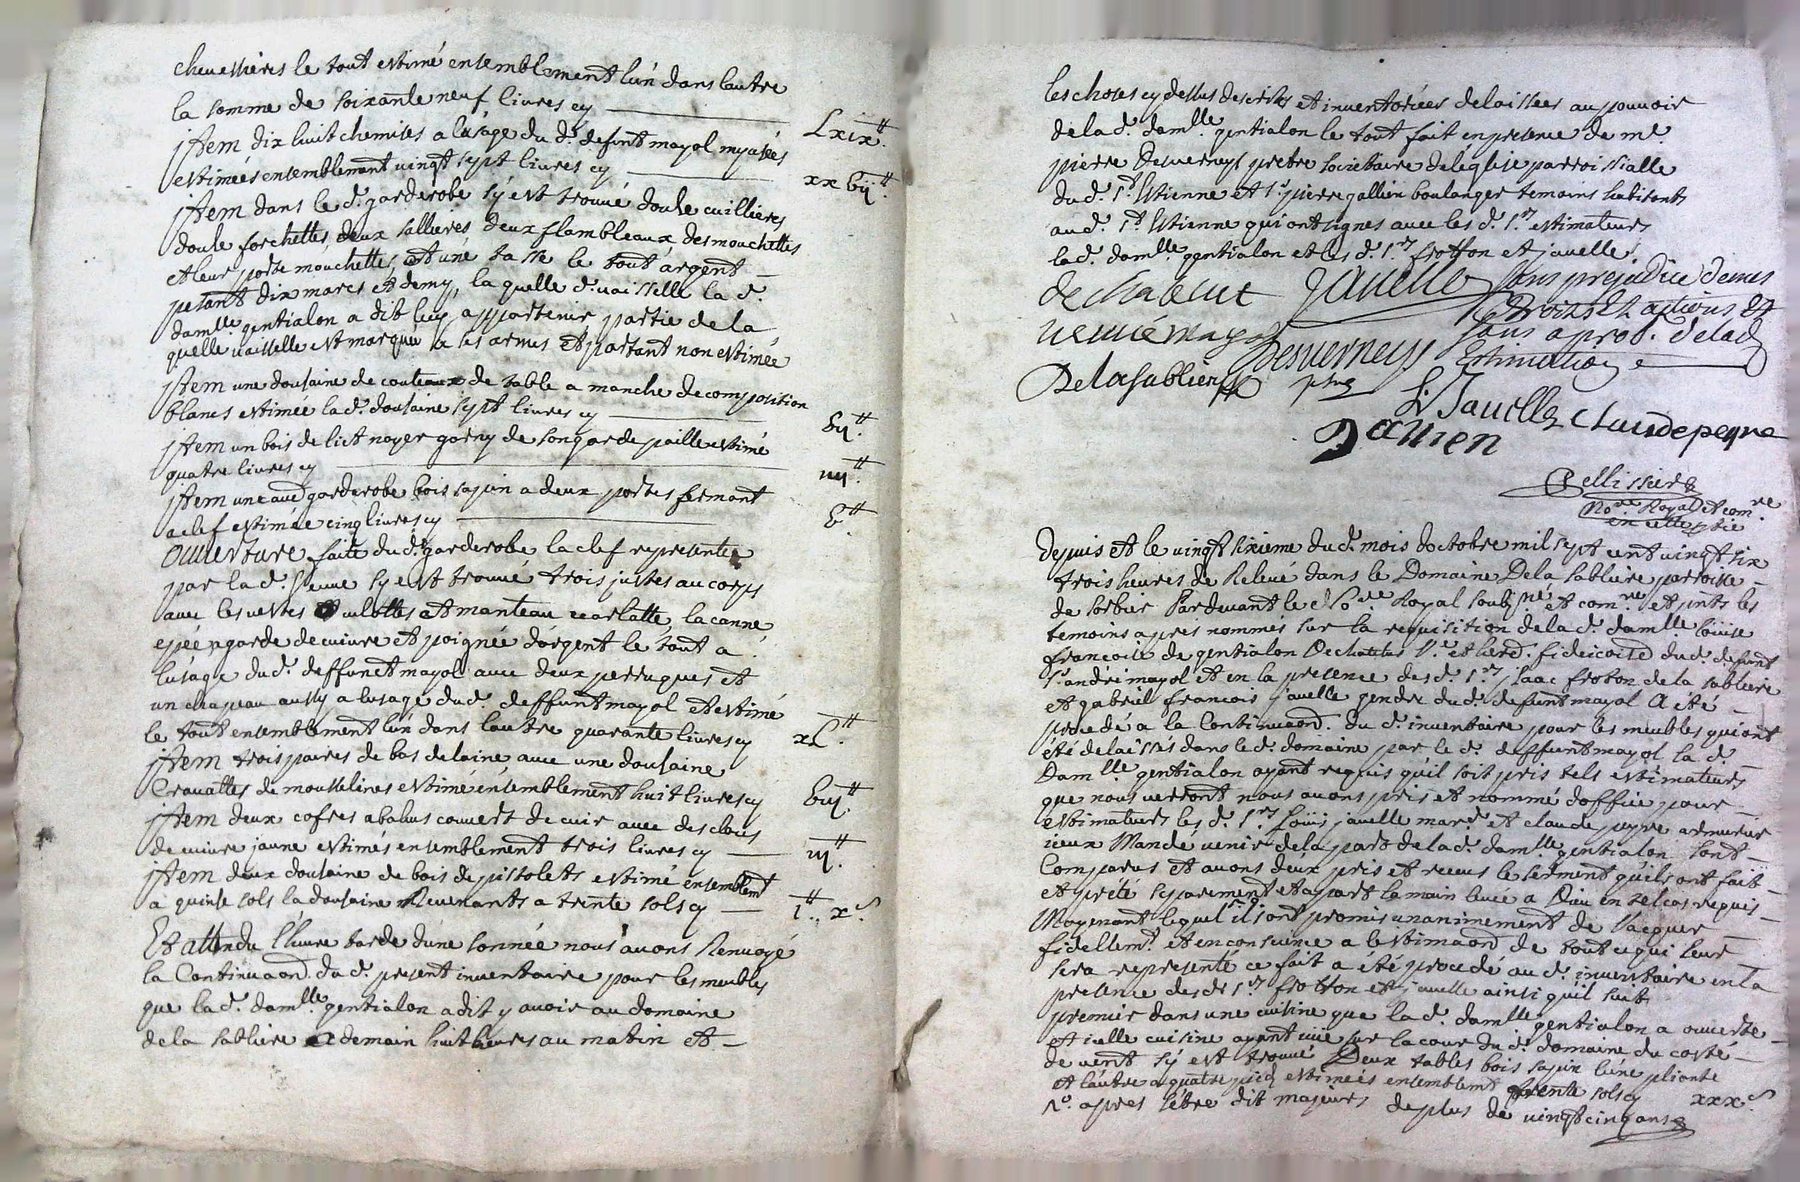 chevessieres le tout estimé ensemblement l'un dans lautre
la somme de soixante neuf livres cy
Lxix ₶.
jtem dix huit chemises a lusage du d. defint mayol my usées
estimées ensemblement vingt sept livres cy
xxbij ₶.
jtem dans le d. garderobe s'y est trouvé douse cuillieres
douse forchettes, deux sallieres deux flambleaux des mouchettes
et leur porte mouchettes, et une tasse le tout argent
pesant dix marcs et demy, la quelle d. vaisselle la d.
damlle gentialon a dit luy appartenir partie de la
quelle vaisselle est marquée a ses armes et partant non estimée
jtem une dousaine de couteaux de table a manche de composition
blancs estimée la d. dousaine sept livres cy
bij ₶.
jtem un bois de lict noyer garny de son garde paille estimé
quatre livres cy
iiij ₶.
jtem une aud garderobe bois sapin a deux portes fermant
a clef estimée cinq livres cy
b ₶.
Ouverture faite du d. garderobe la clef representée
par la d. veuve s'y est trouvé trois justes au corps
avec les vestes et culottes et manteau ecarlatte, la canne
epée a garde de cuivre et poignée d'argent le tout a
l'usage du d. deffunct mayol avec deux perruques et
un chapeau aussy a lusage du d. deffunt mayol et estimé
le tout ensemblement l'un dans lautre quarante livres cy
xL ₶.
jtem trois paires de bas de laine avec une dousaine
Cravattes de mousselines estimé ensemblement huit livres cy
biij ₶.
jtem deux cofres a bahus couverts de cuir avec des clous
de cuivre jaune estimés ensemblement trois livres cy
iij ₶.
jtem deux dousaine de bois de pistolets estimé ensemblemt
a quinse sols la dousaine Revenants a trente sols cy
i ₶. x s.
Et attendu l'heure tarde d'une sonnée nous avons Renvoyé
la Continuaōn du d. present inventaire pour les meubles
que la d. damlle gentialon a dit y avoir au domaine
de la sabliere a demain huit heures au matin et
les choses cy dessus descrites et inventoriées delaissées au pouvoir
de la d. damlle gentialon le tout fait en presence de mr.
pierre Desverneys prebre societaire de l'eglise parroissialle
du d. St. Estienne et sr. pierre gallien boulanger temoins habitants
aud. St. Estienne qui ont signes avec les d. srs. estimateurs
la d. damlle gentialon et les d. srs. frotton et javelle.
dechatelut Javelle sans prejudice de mes
droits et actions et
veuve mayol sans aprob. de lad
Desverneys estimation
Delasabliere pbre
L. Javelle Claude peyre
Gallien
Pellissier
Nore. Royal et comre
en cette ptie
Depuis et le vingt sixieme du d. mois doctobre mil sept cent vingt six
trois heures de Relevé dans le Domaine De la sabliere parroisse
de sorbier Pardevant le d. Nore Royal soubsné et comre et pnts les
temoins apres nommés sur la requisition de la d. damlle loüise
francoise de gentialon Dechatelus Ve. et herd. fideicoīse du d. defunt
sr. andré mayol et en la presence des d. srs. jsaac froton de la sabliere
et gabriel francois javelle gendre du d. defunt mayol A été
procedé a la Continuaōn du d. inventaire pour les meubles qui ont
été delaissés dans le d. domaine par le d. deffunt mayol la d.
Damlle gentialon ayant requis qu'il soit pris tels estimateurs
que nous verront nous avons pris et nommé doffice pour
estimateurs les d. srs. loüis javelle marcd. et claude peyre armurier
iceux Mandé venir de la part de la d. damlle gentialon sont
Comparus et avons deux pris et receus le serment qu'ils ont fait
et prété separement et a part la main levée a Dieu en tel cas requis
Moyenant lequel ils ont promis unanimement de vacquer
fidellemt. et en consience a lestimaōn de tout ce qui leur
sera representé ce fait a été procedé au d. inventaire en la
presence des d. srs. frotton et javelle ainsi qu'il suit
premier dans une cuisine que la d. damlle gentialon a ouverte
et icelle cuisine ayant vüe sur la cour du d. domaine du costé
de vent s'y est trouvé Deux tables bois sapin l'une pliante
et l'autre a quatre pied estimées ensemblemt trente sols cy
xxx s
No. apres s'être dit majeurs de plus de vingt cinq ans